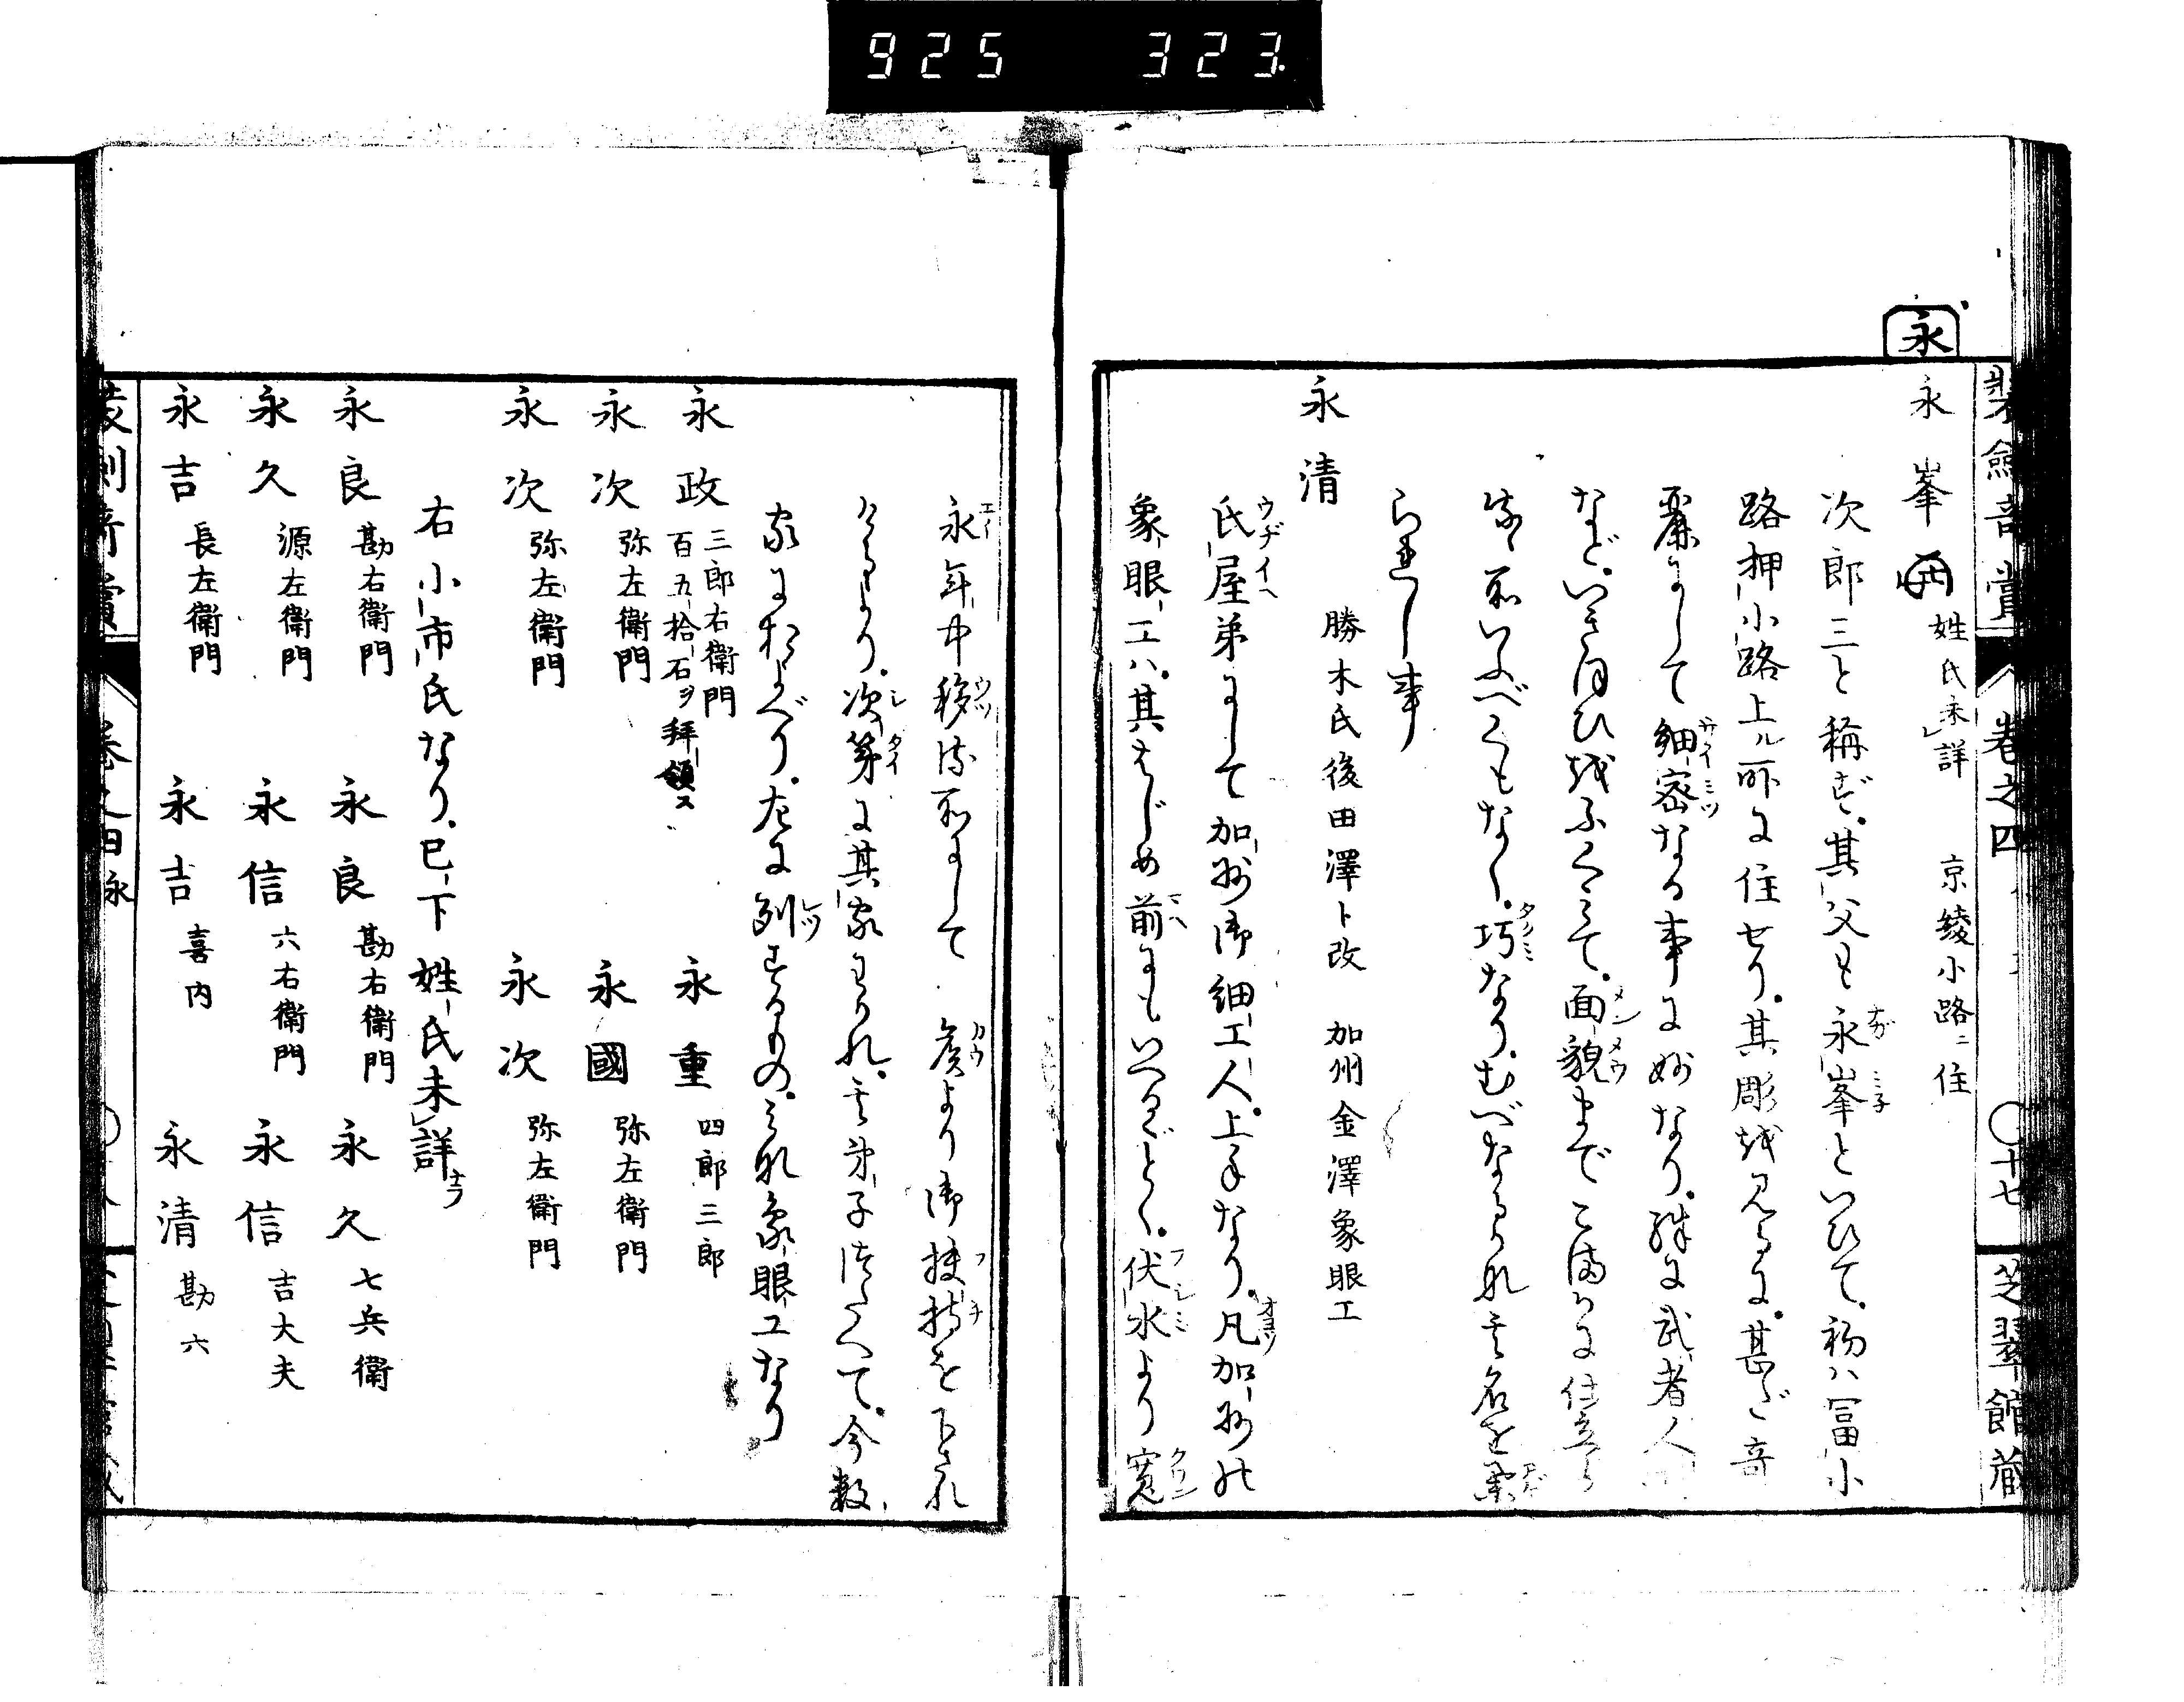 925 323.
装劍奇賞 巻之四 〇十七 芝翠館蔵
永
永峯 姓氏未詳 京綾小路ニ住
次郎三と稱ず其父も永峯といひて初ハ冨小
路押小路上ル所に住せり其彫を見るに甚だ奇
麗にして細密なる事に妙なり殊に武者人
などいきほひをふくみて面貌までこまかに仕立
いふべくもなし巧なりむべなるかな其名を
られし事
永清 勝木氏後田澤ト改 加州金澤象眼工
氏屋弟にして加州御細工人上手なり凡加州の
象眼工ハ其はじめ前にもいへるごとく伏水より寛
永年中移住にして侯より御扶持を下され
けるより次第に其家わかれ其弟子つたへて今数
家におよべり左に列するものみな象眼工なり
永政 三郎右衛門 百五拾石ヲ拝領ス 永重 四郎三郎
永次 弥左衛門 永國 弥左衛門
永次 弥左衛門 永次 弥左衛門
右小市氏なり已下姓氏未詳
永良 勘右衛門 永良 勘右衛門 永久 七兵衛
永久 源左衛門 永信 六右衛門 永信 吉大夫
永吉 長左衛門 永吉 喜内 永清 勘六